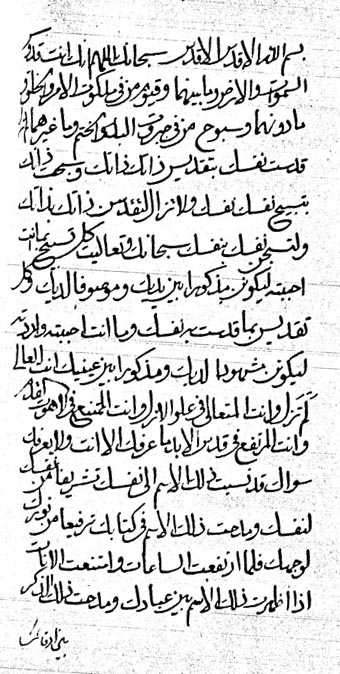 بسم الله الاقدس الاقدس سبحانك اللهم انك انت قدوس
السموات والارض وما بينهما وقيوم من في ملكوت الامر والخلق
ما دونهما وسبوح من في جبروت البدء والختم وما غيرهما
قدست نفسك بتقديس ذاتك ذاتك وسبحت ذاتك
بتسبيح نفسك نفسك ولا تزال لتقدسن ذاتك بذاتك
ولتسبحن نفسك بنفسك سبحانك وتعاليت كل تسبيح انت
احببته ليكونن مذكورا بين يديك وموصوفا لديك وكل
تقديس بما قدست به نفسك وما انت احببته واردته
ليكونن مشهودا لديك ومذكورا بين عينيك انت العالي
لم تزل وانت المتعالي في علو الازل وانت الممتنع في
وانت المرتفع في قدس الاباد ما عرفك الا انت ولا يعرفك
سواك قد نسبت ذلك الاسم الى نفسك تشريفا من نفسك
لنفسك ومدحت ذلك الاسم في كتابك ترفيعا من
لوجهك فلما ارتفعت الساعات وامتنعت الايات
اذا اظهرت ذلك الاسم بين عبادك ومدحت ذلك الذكر